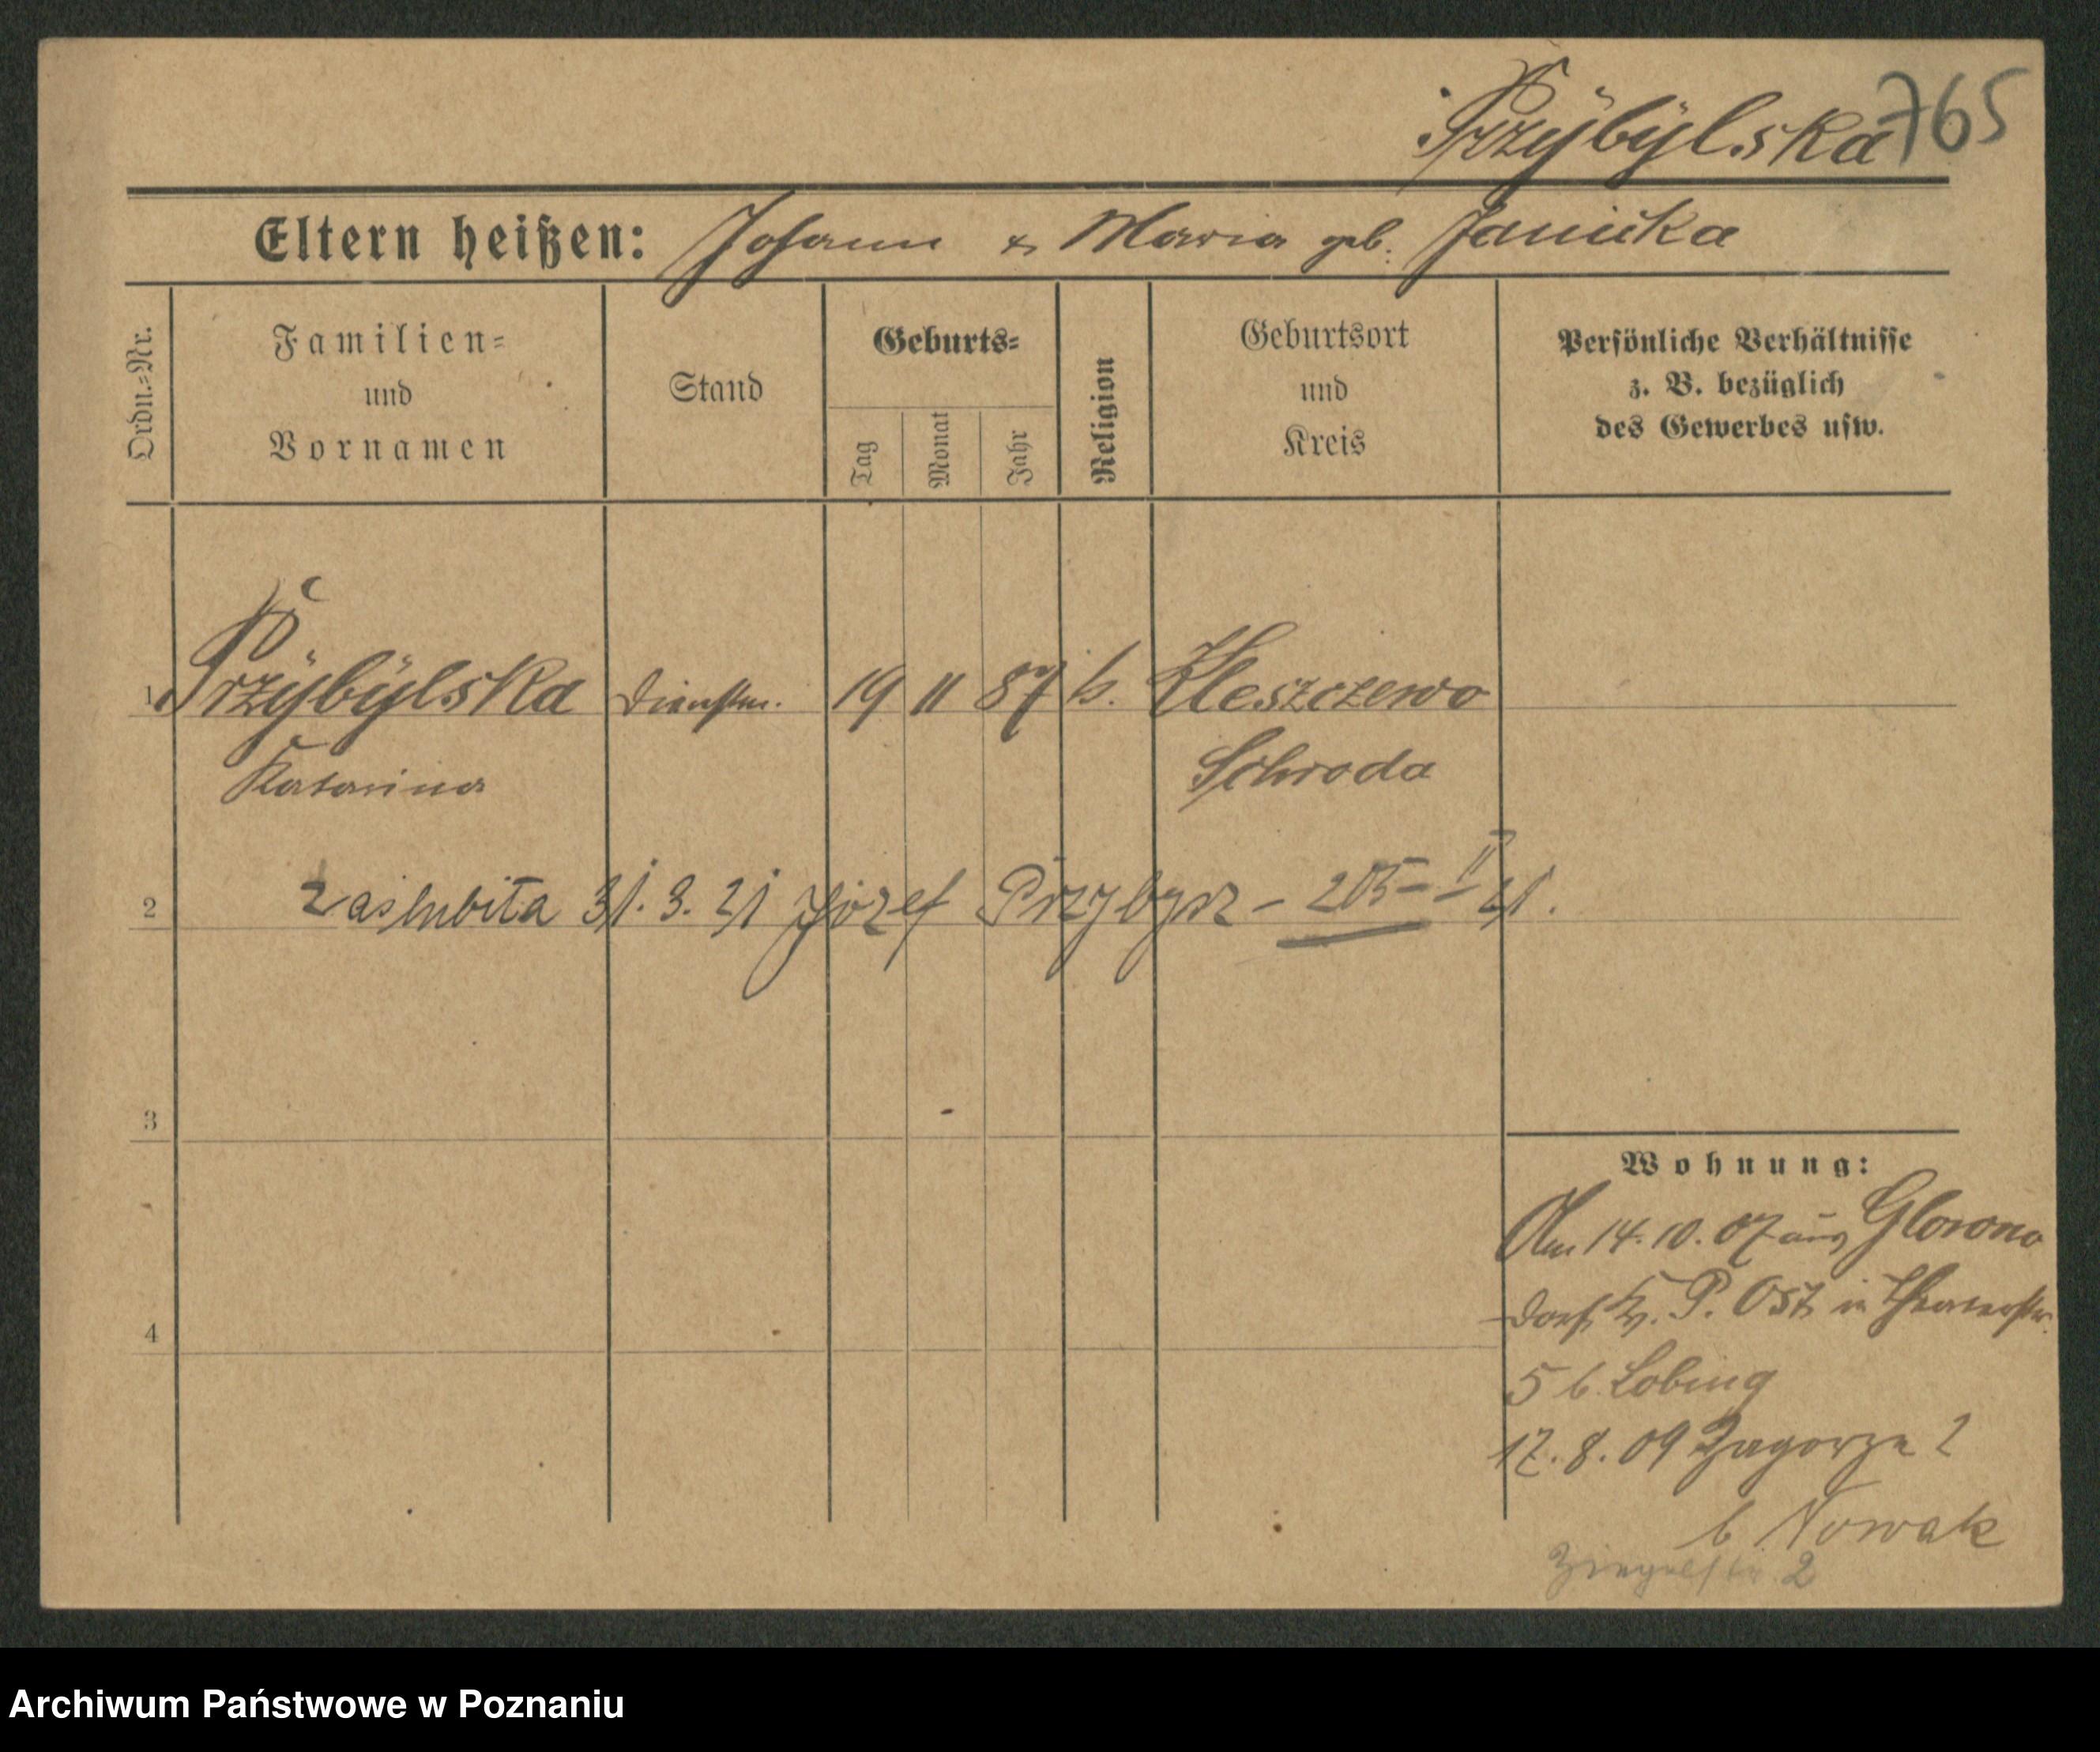 Przÿbÿlska 765
Eltern heißen: Johann & Maria geb. Janicka
Ordn.=Nr.
Familien=
und
Vornamen
Stand
Geburts=
Tag
Monat
Jahr
Religion
Geburtsort
und
Kreis
Persönliche Verhältnisse
z. B. bezüglich
des Gewerbes usw.
1 Przÿbÿlska Dienstm. 19 11 87 k. Kleszczewo
Katarina Schroda
2 zaślubiła 31. 3. 21 Józef Przybysz - 205 - II 21.
3
Wohnung:
Am 14. 10. 07 aus Glowno
Dorf Kr. P. Ost in Theaterstr.
4
5 b. Lobing
17. 8. 09 Zagorze 2
b Nowak
Ziegelstr. 2
Archiwum Państwowe w Poznaniu